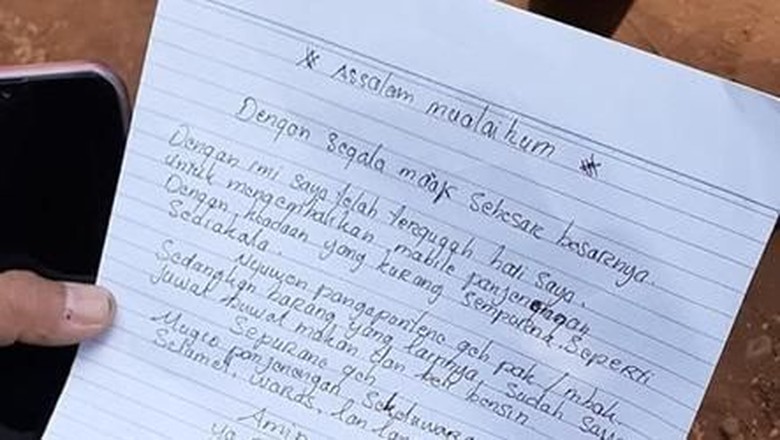 * Assalam mualaikum *
Dengan segala maap sebesar besarnya.
Dengan ini saya telah tergugah hati saya.
untuk mengembalikan mobile panjenengan
Dengan keadaan yang kurang sempurna. Seperti
Sediakala.
Nyuwon pangapontene geh pak / mbah.
Sedangkan barang yang lainnya sudah saya
juwal buwat makan dan beli bensin
Sepurane geh
Mugio panjenengan Sekeluwarga
Selamet, waras, lan
Amin